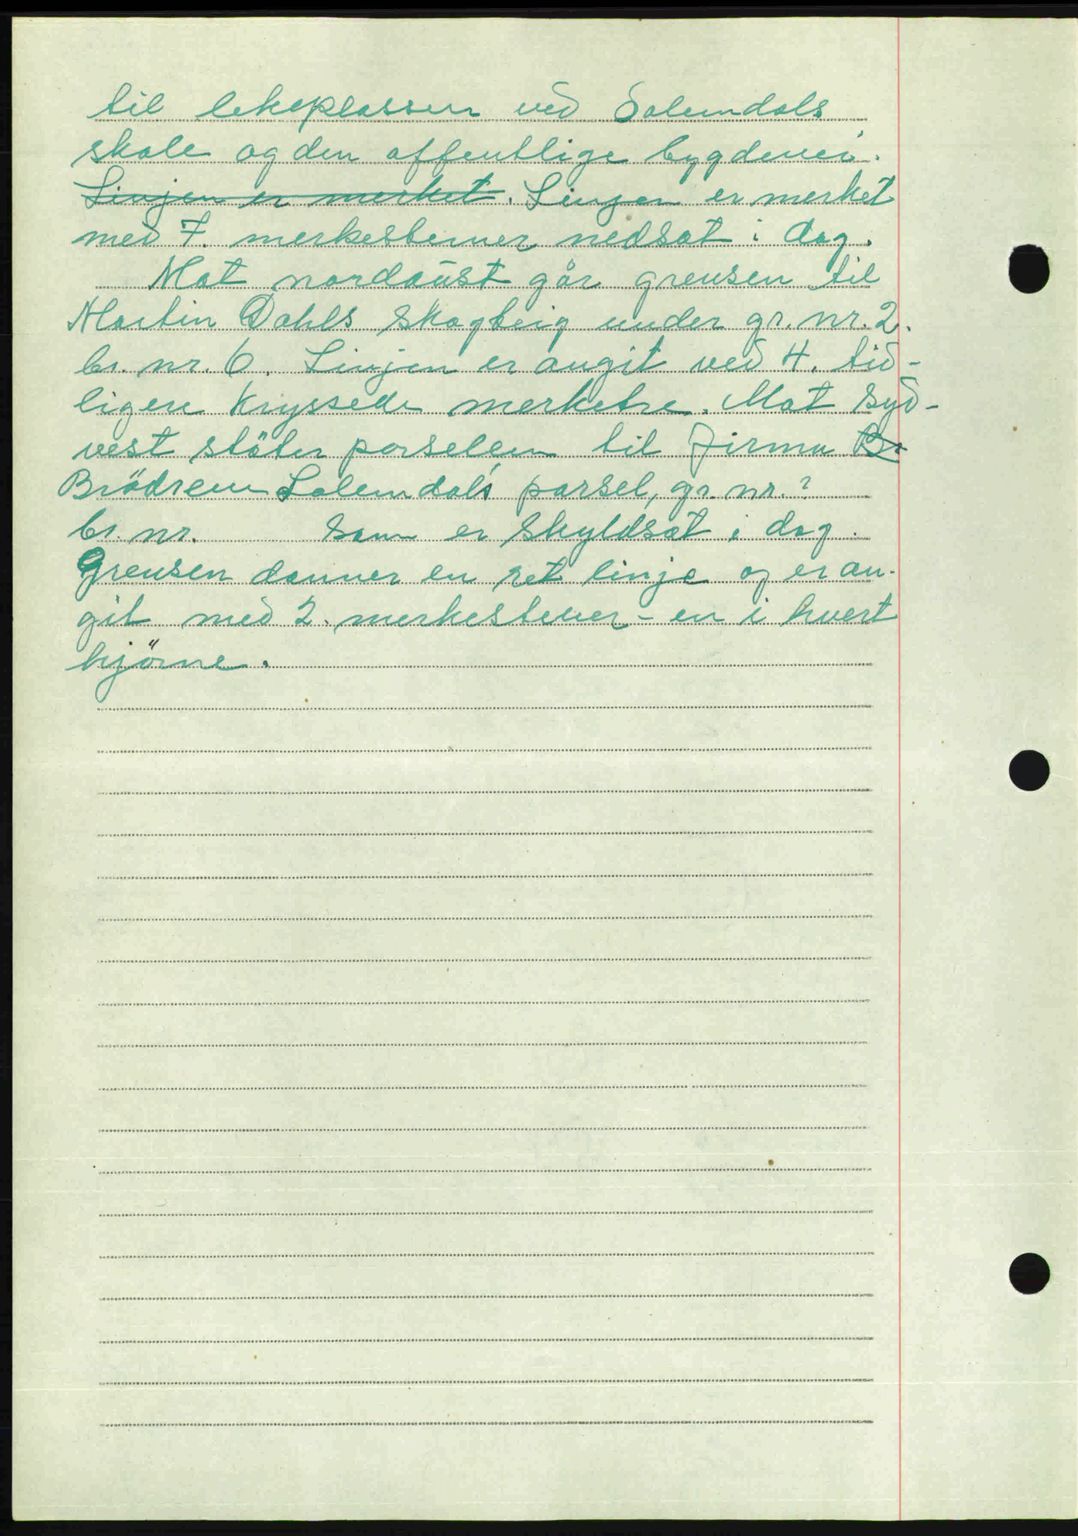 til lekeplassen ved Solemdals
skole og den offentlige bygdevei.
Linjen er merket. Linjen er merket
med 7. merkestener nedsat i dag.
Mot nordaust går grensen til
Martin Dahls skogteig under gr. nr. 2.
br. nr. 6. Linjen er angit ved 4. tid-
ligere kryssede merketre. Mot syd-
vest stöter parselen til Firma Br
Brödrene Solemdals parsel, gr. nr. 2
br. nr. som er skyldsat i dag.
Grensen danner en ret linje og er an-
git med 2. merkestener - en i hvert
hjörne.